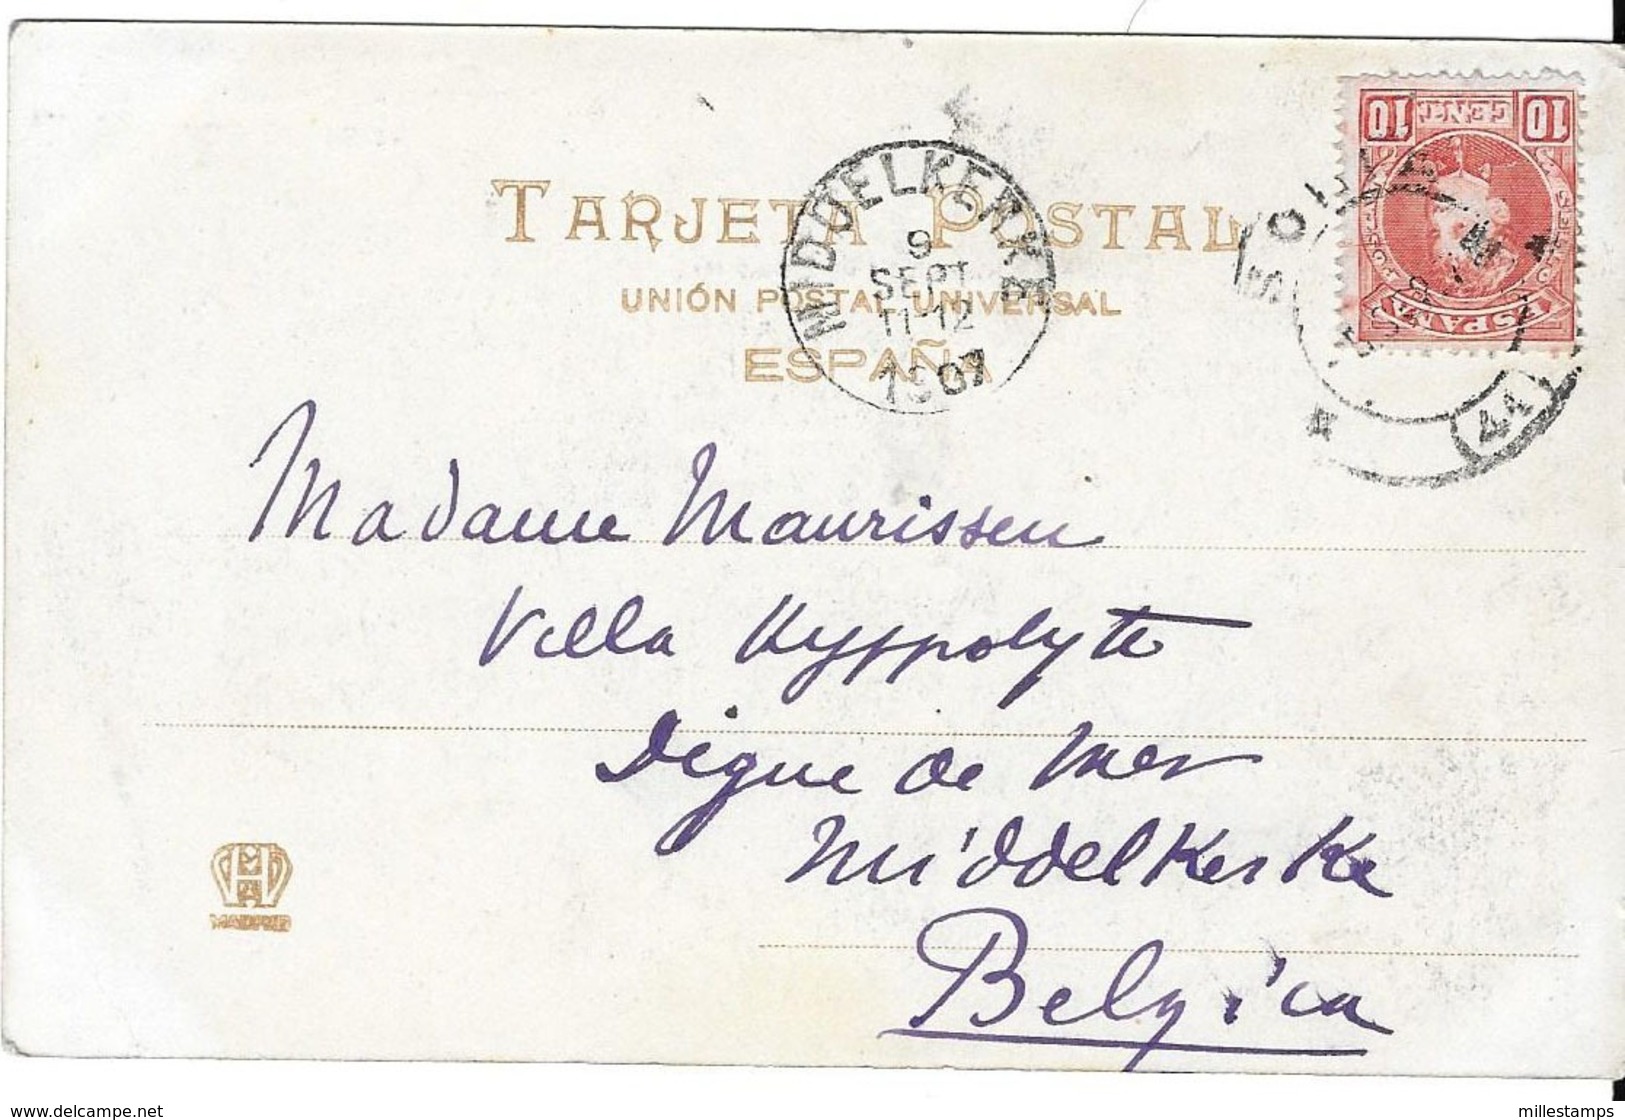 TARJETA POSTAL
UNIÓN POSTAL UNIVERSAL
ESPAÑA
MIDDELKERKE
9
SEPT
11-12
1907
10 CENT 10
ESPAÑA
44
Madame Maurissen
Villa Hyppolyte
Digue de Mer
Middelkerke
Belgica
MADRID
www.delcampe.net
millestamps